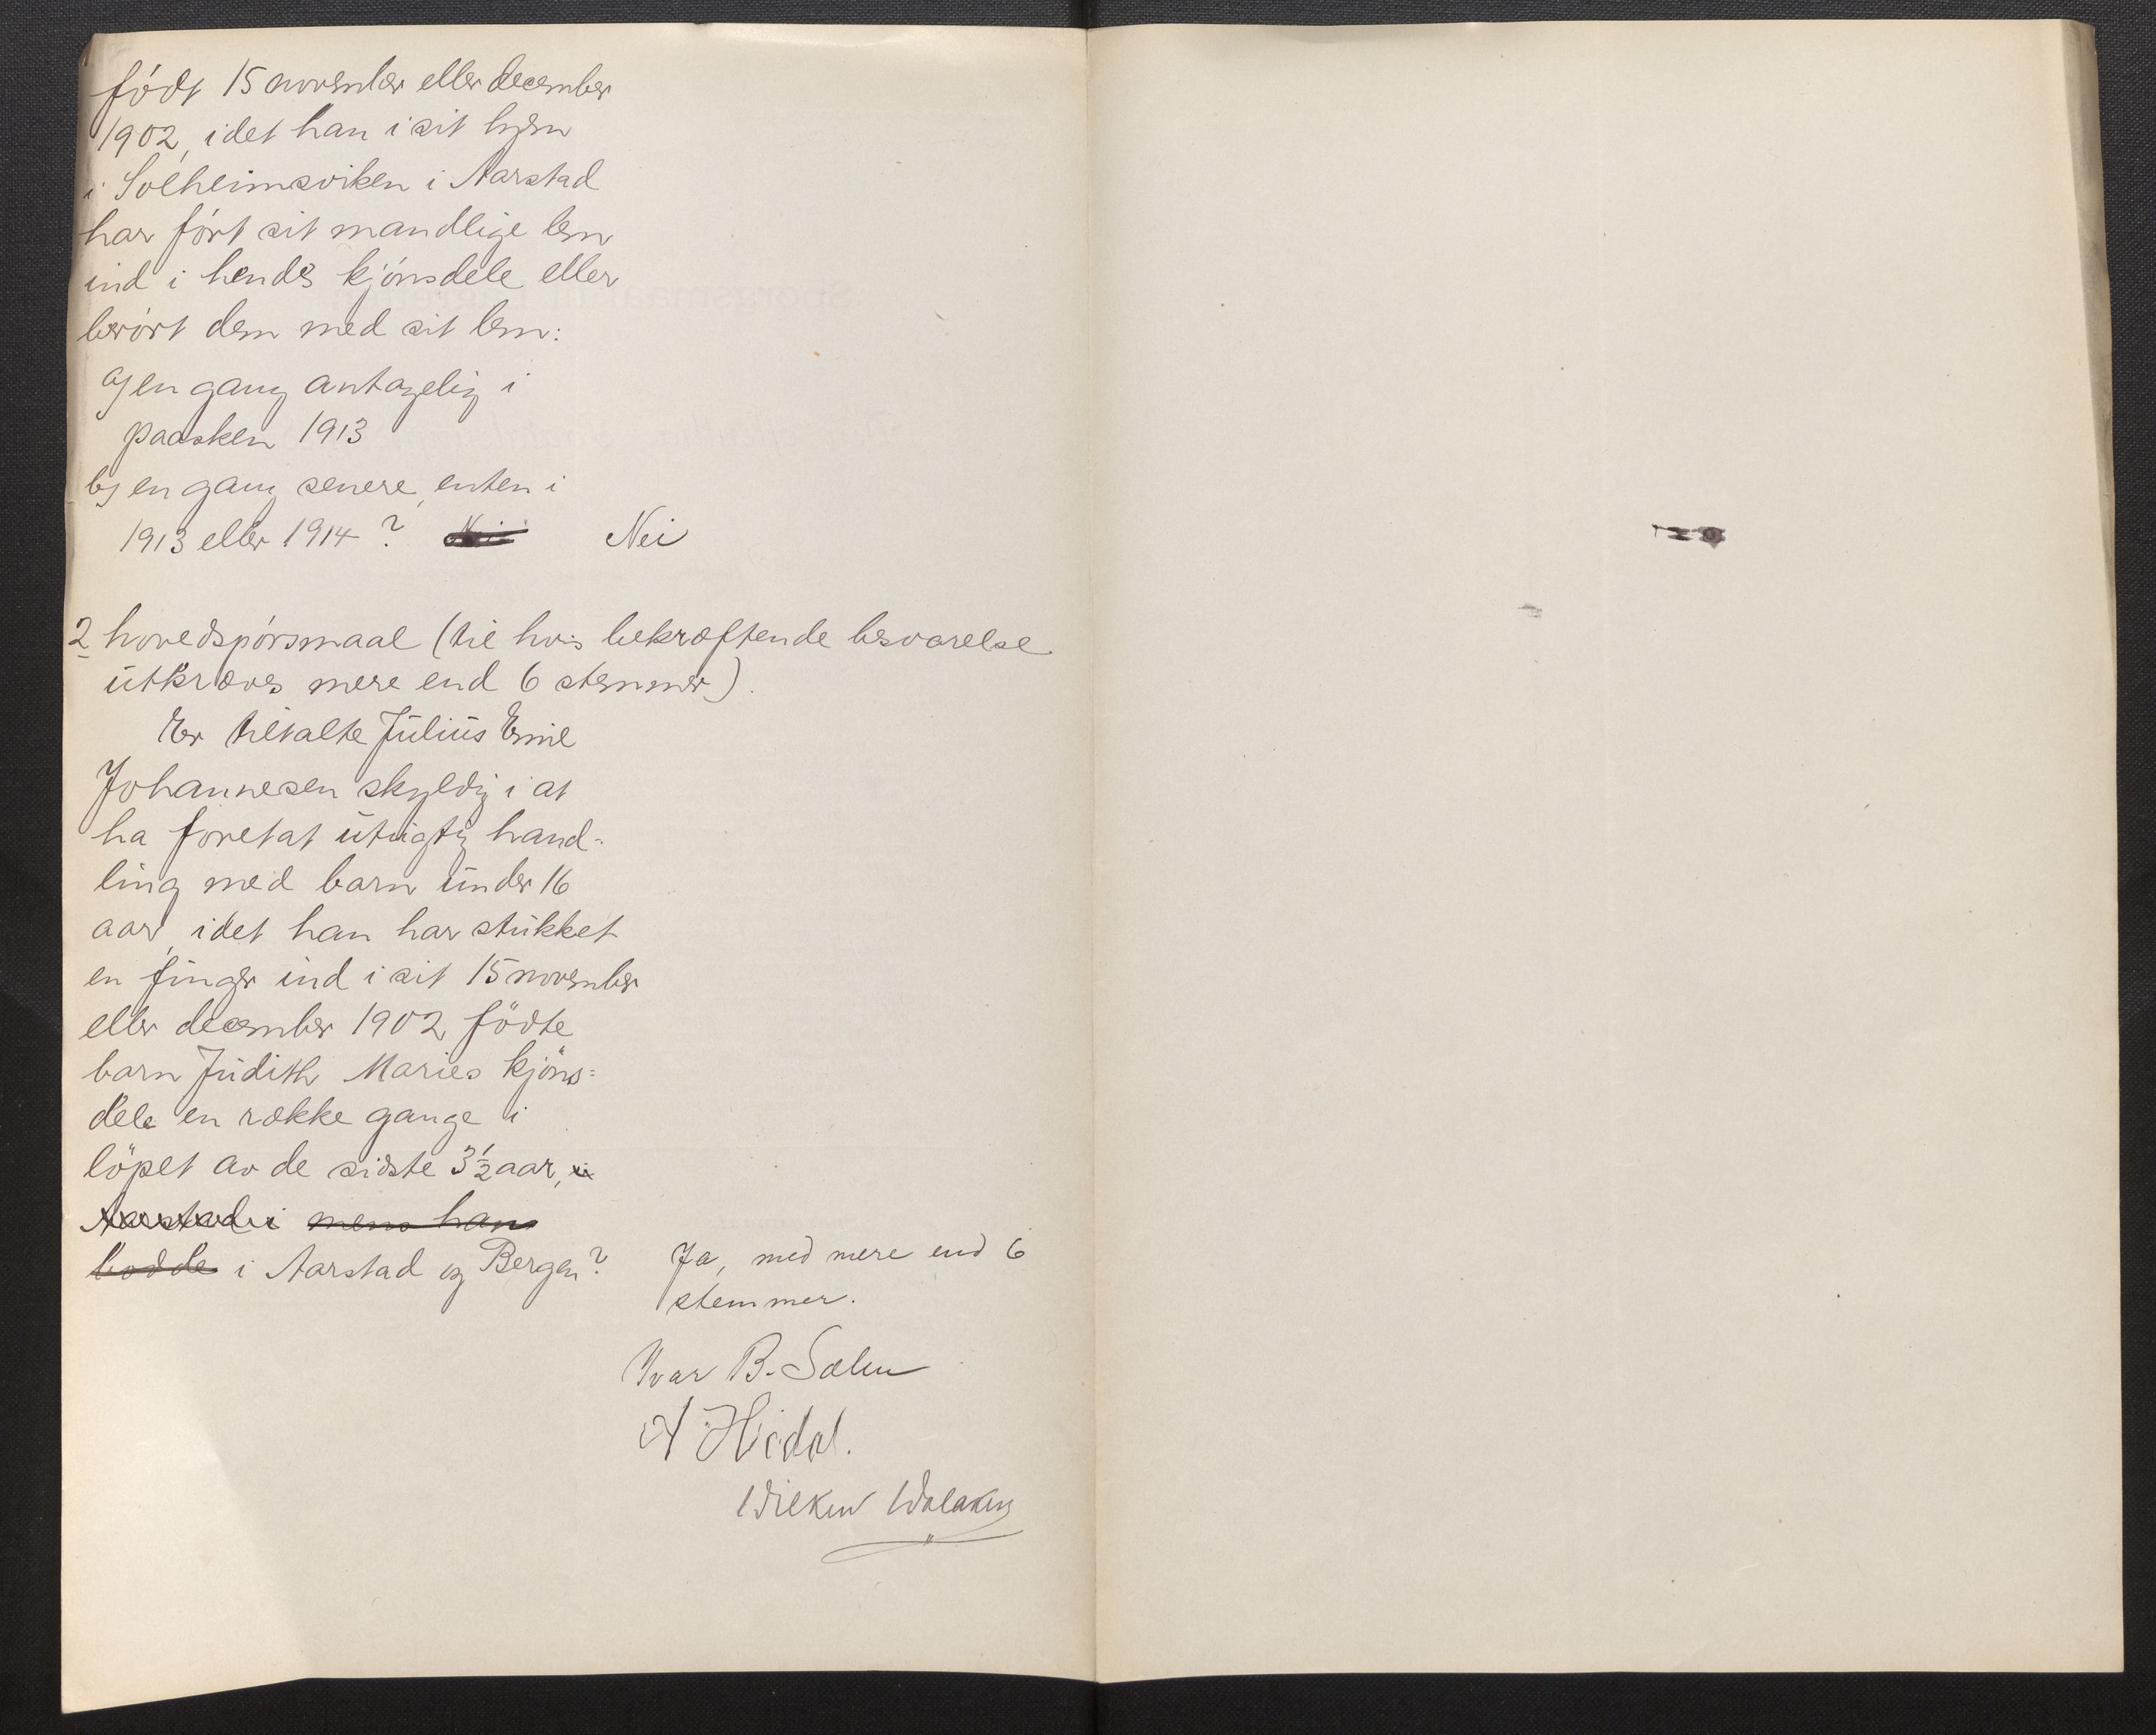 født 15 november eller december
1902, idet han i sit hjem
i Solheimsviken i Aarstad
har ført sit mandlige lem
ind i hendes kjønsdele eller
berørt dem med sit lem:
a) en gang antagelig i
paasken 1913
b) en gang senere, enten i
1913 eller 1914? Nei Nei
2 hovedspørsmaal (til hvis bekræftende besvarelse
utkræves mere end 6 stemmer).
Er tiltalte Julius Emil
Johannesen skyldig i at
ha foretat utugtig hand-
ling med barn under 16
aar, idet han har stukket
en finger ind i sit 15 november
eller december 1902 fødte
barn Judith Maries kjøns=
dele en række gange i
løpet av de sidste 3½ aar, i
Aarstad i mens han
bodde i Aarstad og Bergen? Ja, med mere end 6
stemmer.
Ivar B. Sælen
A Hisdal.
Wilken